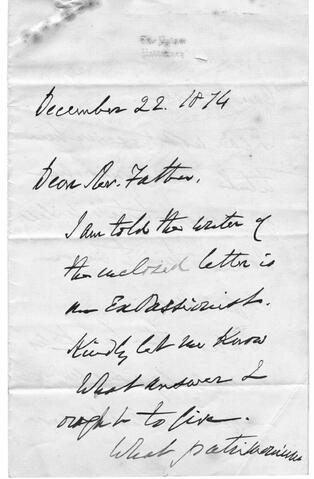 December 22. 1874
Dear Rev. Father,
I am told the writer of
the enclosed letter is
an ExPassionist.
Kindly let me know
What answer I
ought to give.
What patrimonium